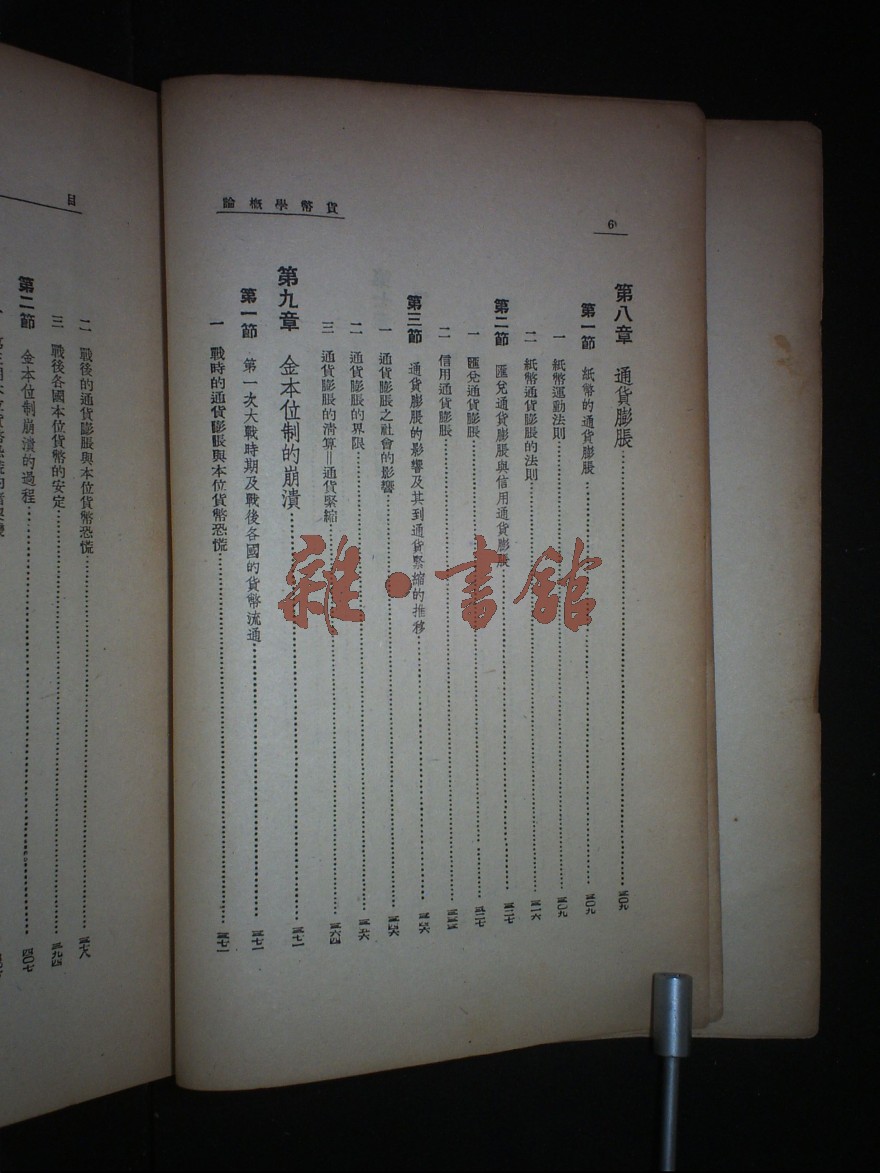 貨幣學概論
6
第八章 通貨膨脹……三〇九
第一節 紙幣的通貨膨脹……三〇九
一 紙幣運動法則……三〇九
二 紙幣通貨膨脹的法則……三一六
第二節 匯兌通貨膨脹與信用通貨膨脹……三二七
一 匯兌通貨膨脹……三二七
二 信用通貨膨脹……三三三
第三節 通貨膨脹的影響及其到通貨緊縮的推移……三四六
一 通貨膨脹之社會的影響……三四六
二 通貨膨脹的界限……三五六
三 通貨膨脹的清算=通貨緊縮……三六四
第九章 金本位制的崩潰……三七一
第一節 第一次大戰時期及戰後各國的貨幣流通……三七一
一 戰時的通貨膨脹與本位貨幣恐慌……三七一
目
二 戰後的通貨膨脹與本位貨幣恐慌……三七八
三 戰後各國本位貨幣的安定……三九四
第二節 金本位制崩潰的過程……四〇七
雜·書館